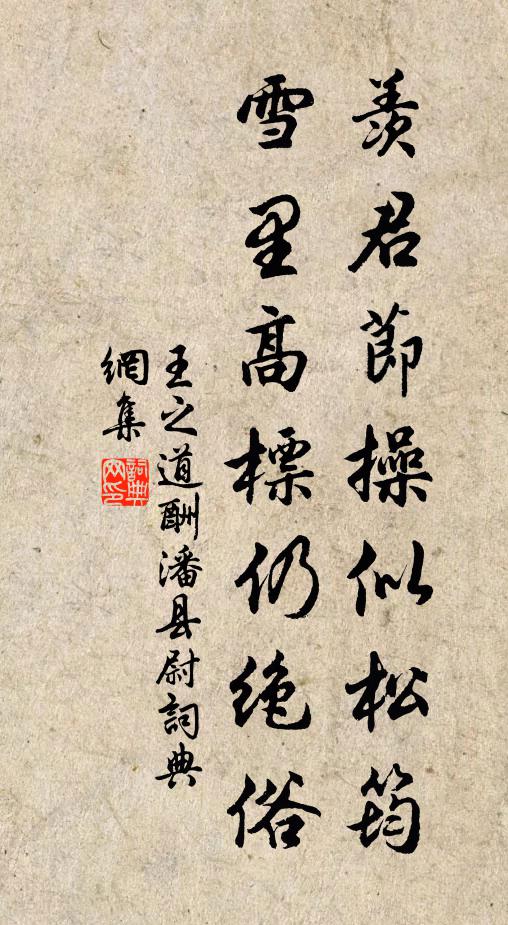 羨君節操似松筠
雪里高標仍絶俗
王之道酬潘县尉詞典
網集
詞典
网印